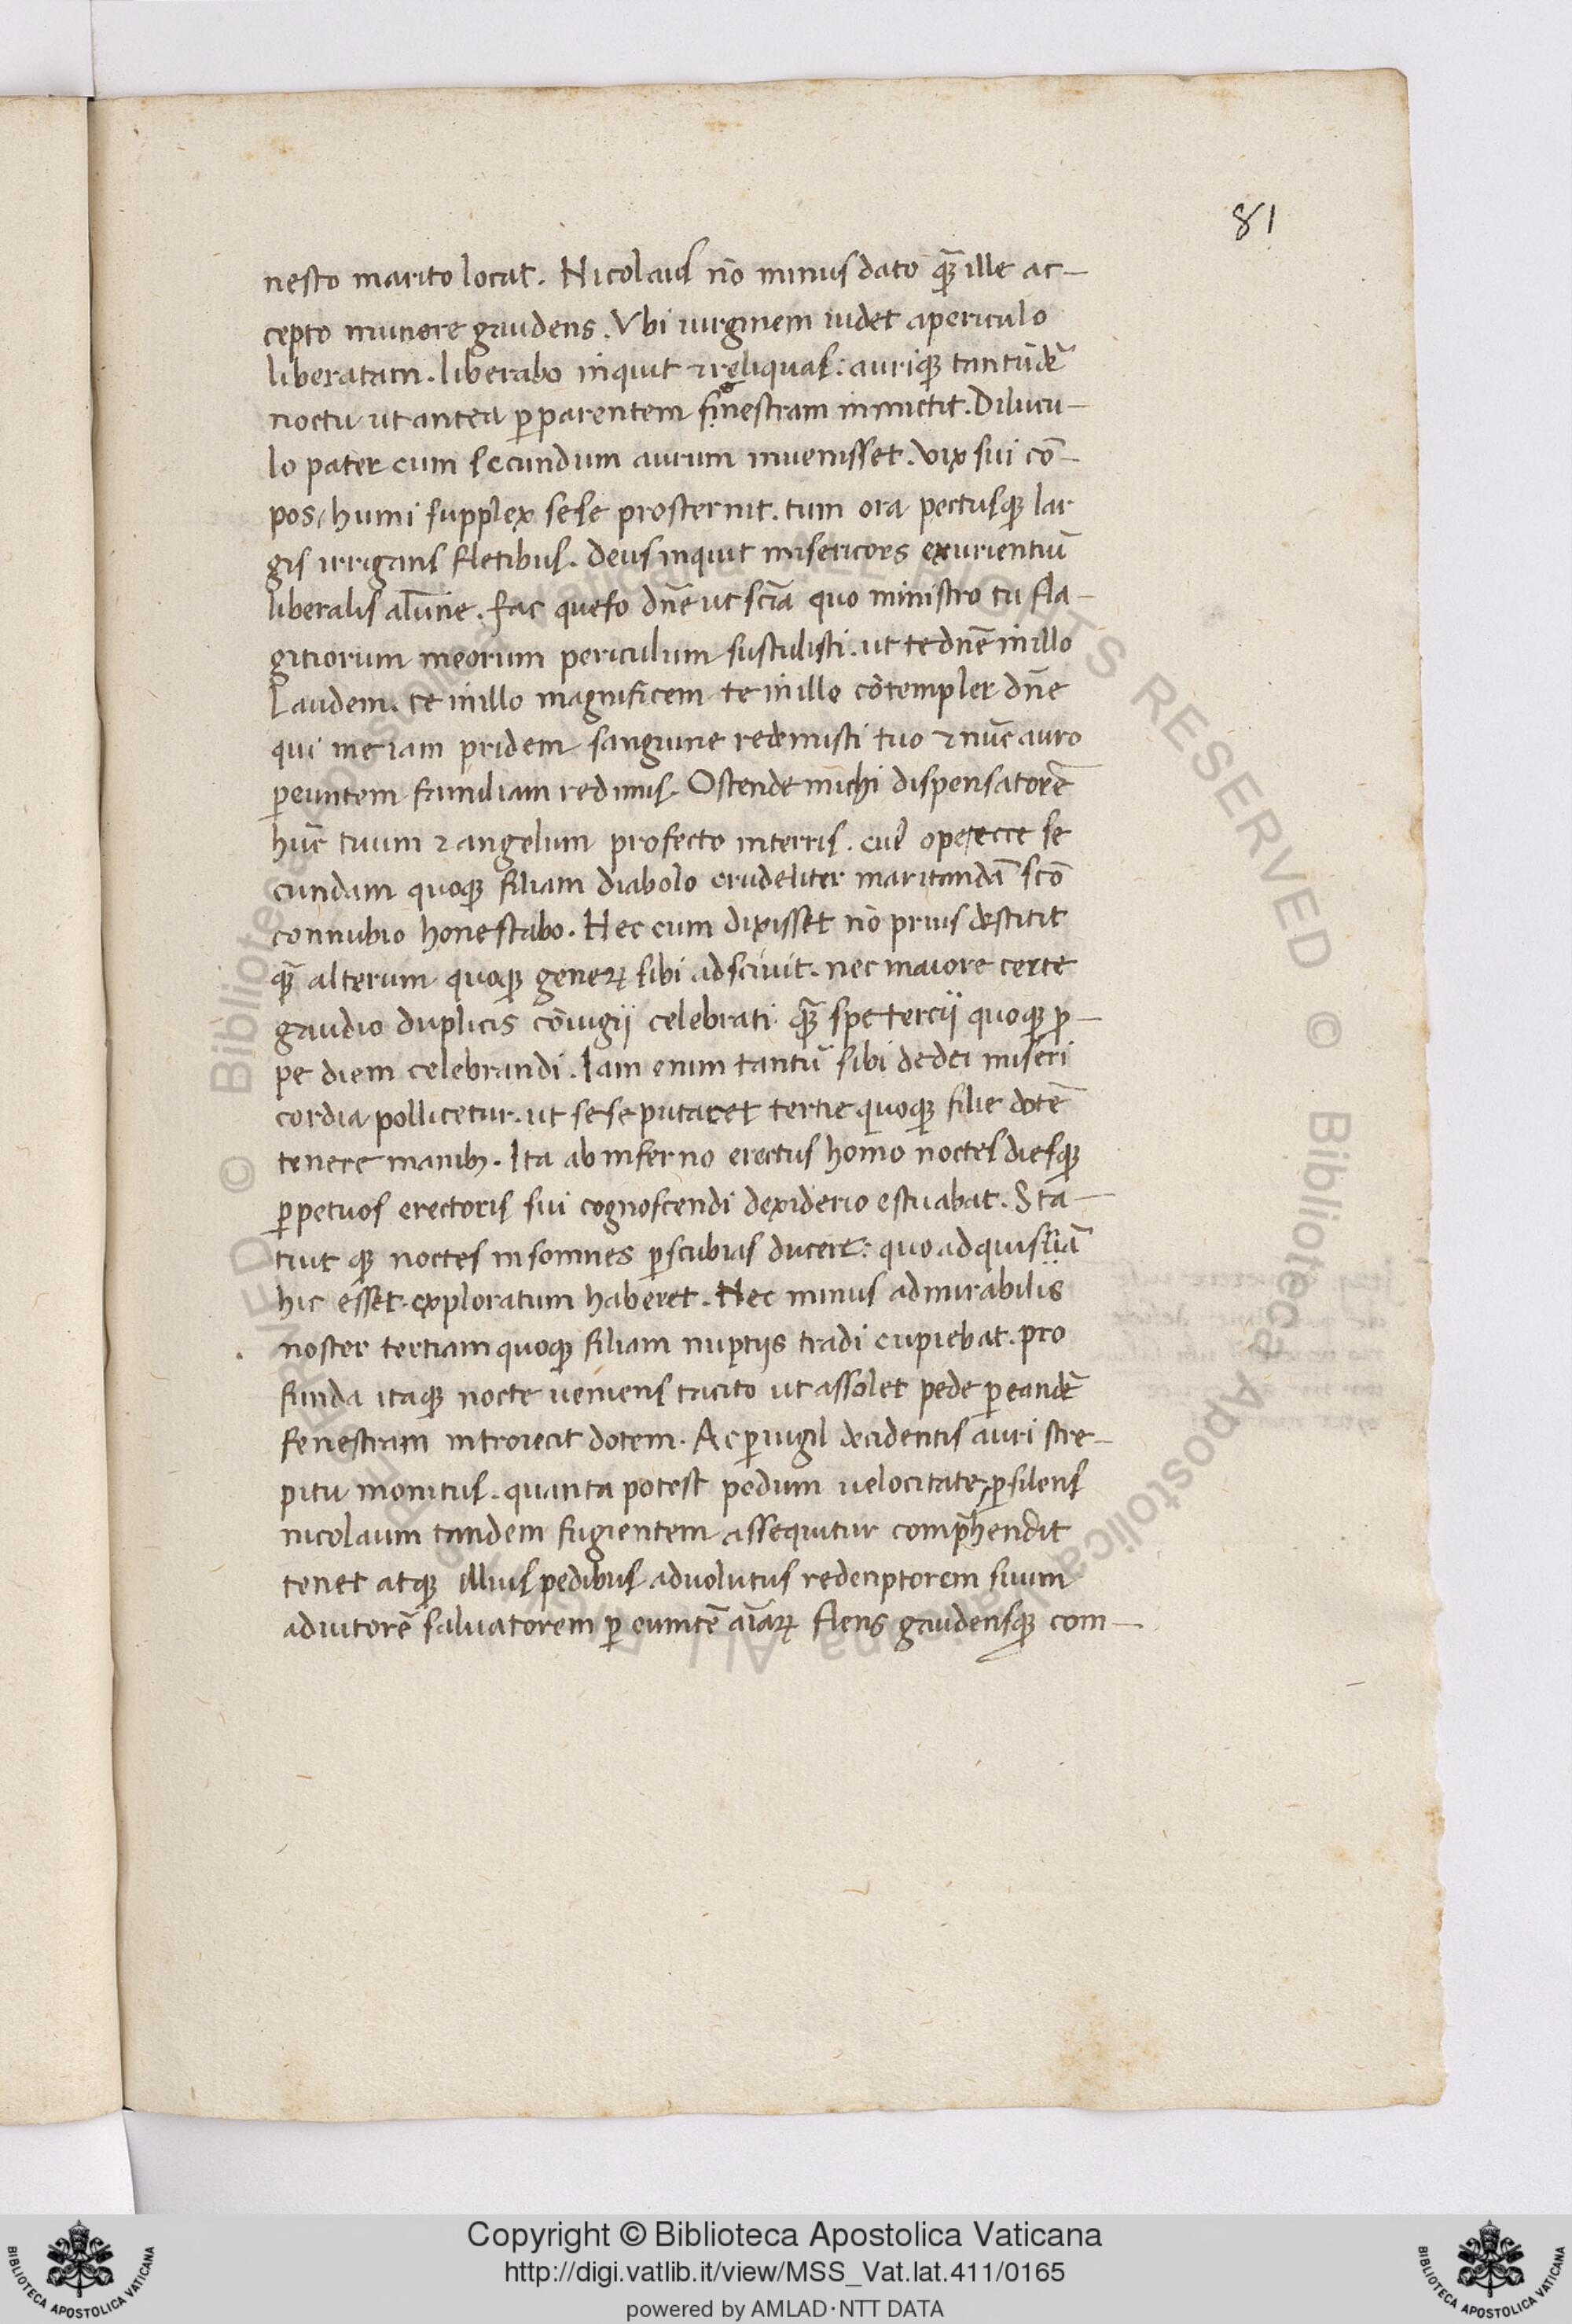 81
nesto marito locat. Nicolaus nō minus dato qȝ̄ ille ac-
cepto munere gaudens. Vbi uirginem uidet a periculo
liberatam. liberabo inquit ⁊ reliquas: auriqȝ tantūdē
noctu ut antea ꝑ parentem finestram inmictit. Dilucu-
lo pater cum secundum aurum inuenisset. vix sui cō-
pos, humi supplex sese prosternit. tum ora pectusqȝ lar
gis irrigans fletibus. Deus inquit misericors exurientiū
liberalis alūne. fac queso dn̄e ut sciā quo ministro tu fla-
gitiorum meorum periculum sustulisti. ut te dn̄e in illo
Laudem. te in illo magnificem te in illo cōtempler dn̄e
qui me iam pridem sanguine redemisti tuo ⁊ nūc auro
ꝑeuntem familiam redimis. Ostende michi dispensatorē
hūc tuum ⁊ angelum profecto in terris. cuiꝰ ope ecce se
cundam quoqȝ filiam diabolo crudeliter maritandā scō
connubio honestabo. Hec cum dixisset nō prius destitit
qȝ̄ alterum quoqȝ generꝝ sibi adsciuit. nec maiore certe
gaudio duplicis cōiugij celebrati qȝ̄ spe tercij quoqȝ ꝓ-
pe diem celebrandi. Iam enim tantū sibi de dei miseri
cordia pollicetur. ut sese putaret tertie quoqȝ filie dotē
tenere manibȝ. Ita ab inferno erectus homo noctes diesqȝ
ꝑpetuos erectoris sui cognoscendi dexiderio estuabat. Sta-
tuit qȝ noctes insomnes ꝑscubias ducere: quoad quisnā
hic esset. exploratum haberet. Nec minus admirabilis
noster tertiam quoqȝ filiam nuptijs tradi cupiebat. pro
funda itaqȝ nocte ueniens tacito ut assolet pede ꝑ eandē
fenestram introiecit dotem. Ac ꝑuigil decidentis auri stre-
pitu monitus. quanta potest pedum uelocitate, ꝑsilens
nicolaum tandem fugientem assequitur comp̄hendit
tenet atqȝ illius pedibus aduolutus redemptorem suum
adiutorē saluatorem ꝑeuntē aīaꝝ flens gaudensqȝ com-
Copyright © Biblioteca Apostolica Vaticana
http://digi.vatlib.it/view/MSS_Vat.lat.411/0165
powered by AMLAD·NTT DATA